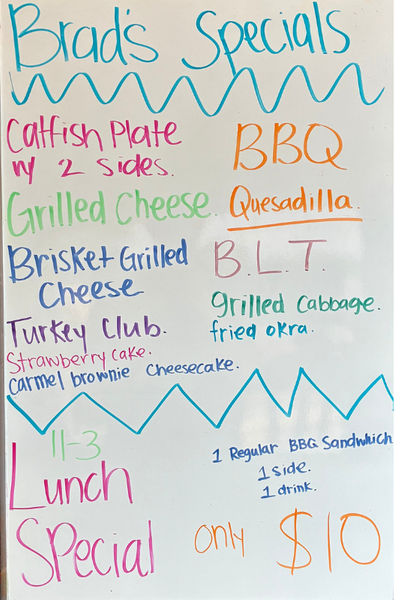 Brad's Specials
Catfish Plate
w/ 2 sides.
Grilled Cheese.
Brisket Grilled
Cheese
Turkey Club.
Strawberry cake.
Carmel brownie cheesecake.
BBQ
Quesadilla.
B.L.T.
grilled cabbage.
fried okra.
11-3
Lunch
Special
1 Regular BBQ Sandwhich
1 side.
1 drink.
only $10